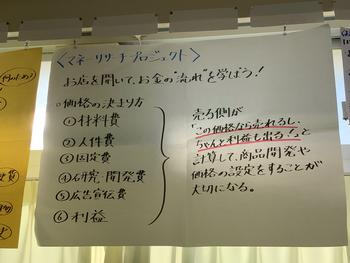 〈マネーリサーチプロジェクト〉
お店を開いて、お金の"流れ"を学ぼう!
○価格の決まり方
①材料費
②人件費
③固定費
④研究・開発費
⑤広告宣伝費
⑥利益
売る側が
「この価格なら売れるし、
ちゃんと利益も出る!」と
計算して、商品開発や
価格の設定をすることが
大切になる。